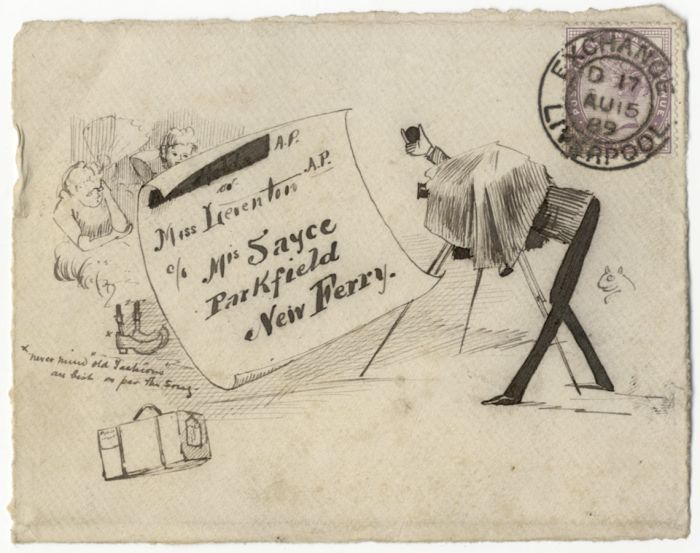 A.P.
or
Miss Leventon A.P.
c/o Mrs Sayce
Parkfield
New Ferry.
x "never mind" "old Fashions"
as per the Song
EXCHANGE
D 17
AU 15
89
LIVERPOOL